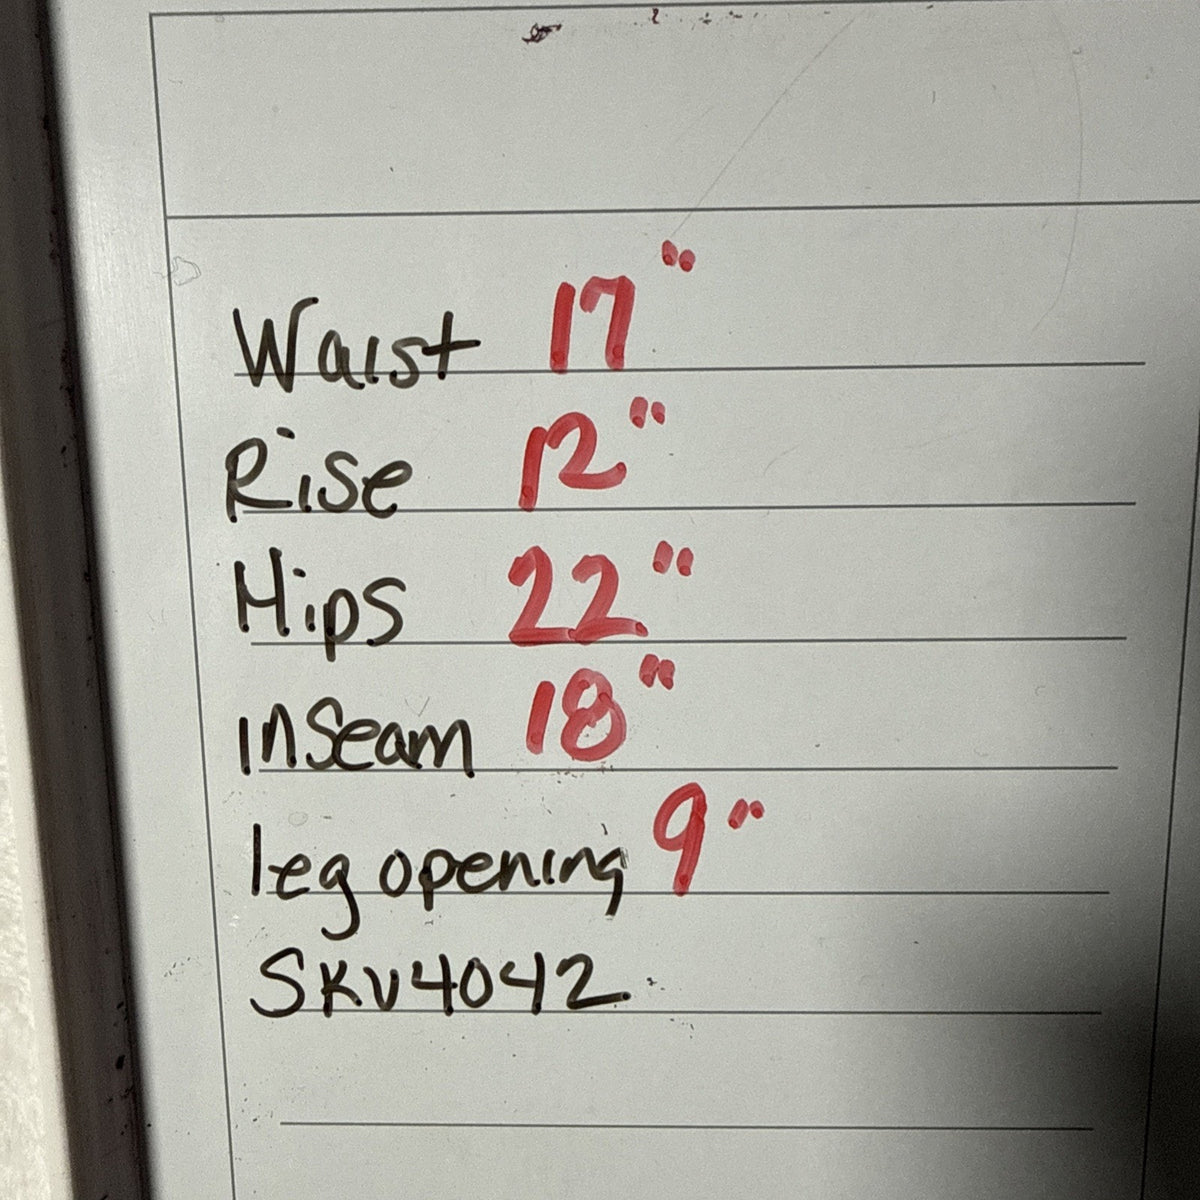 Waist 17"
Rise 12"
Hips 22"
inseam 18"
leg opening 9"
SKU4042